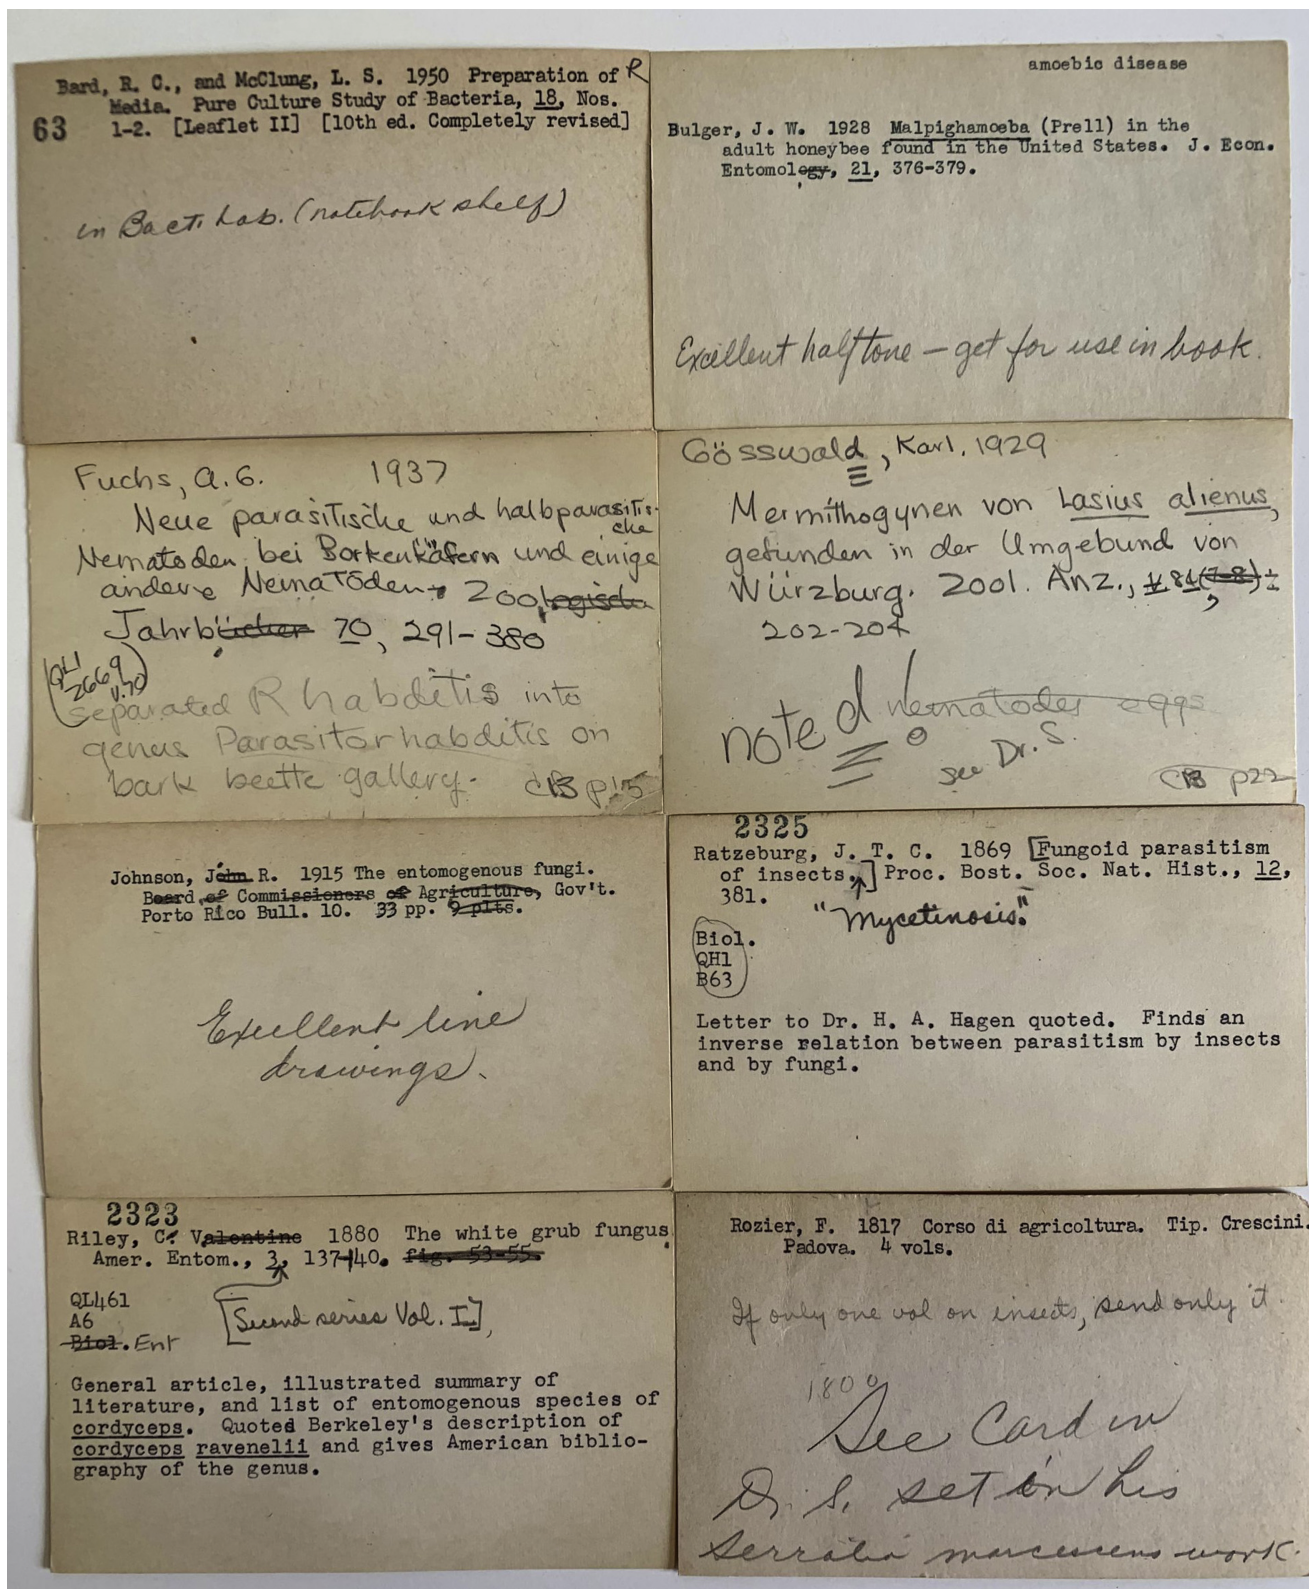 Bard, R. C., and McClung, L. S. 1950 Preparation of R
Media. Pure Culture Study of Bacteria, 18, Nos.
63 1-2. [Leaflet II] [10th ed. Completely revised]
in Bact. Lab. (notebook shelf)
amoebic disease
Bulger, J. W. 1928 Malpighamoeba (Prell) in the
adult honeybee found in the United States. J. Econ.
Entomology, 21, 376-379.
Excellent halftone – get for use in book.
Fuchs, A. G. 1937
Neue parasitische und halbparasitis-
che
Nematoden bei Borkenkäfern und einige
andere Nematoden. Zoologisch
Jahrbücher 70, 291-380
(QL1
2669
v.70)
separated Rhabditis into
genus Parasitorhabditis on
bark beetle gallery.
CB p15
Gösswald, Karl. 1929
Mermithogynen von Lasius alienus,
gefunden in der Umgebund von
Würzburg. Zool. Anz., 84(7-8):
202-204
noted! nematodes eggs
see Dr. S.
CB p22
Johnson, John R. 1915 The entomogenous fungi.
Board of Commissioners of Agriculture, Gov't.
Porto Rico Bull. 10. 33 pp. 9 plts.
Excellent line
drawings.
2325
Ratzeburg, J. T. C. 1869 [Fungoid parasitism
of insects.] Proc. Bost. Soc. Nat. Hist., 12,
381.
"Mycetinosis."
Biol.
QH1
B63
Letter to Dr. H. A. Hagen quoted. Finds an
inverse relation between parasitism by insects
and by fungi.
2323
Riley, C. Valentine 1880 The white grub fungus.
Amer. Entom., 3, 137-140. fig. 53-55.
QL461
A6
Biol. Ent
[Second series Vol. I],
General article, illustrated summary of
literature, and list of entomogenous species of
cordyceps. Quoted Berkeley's description of
cordyceps ravenelii and gives American biblio-
graphy of the genus.
Rozier, F. 1817 Corso di agricoltura. Tip. Crescini.
Padova. 4 vols.
If only one vol on insects, send only it.
1800
See Card in
Dr. S. set in his
Serratia marcescens work.